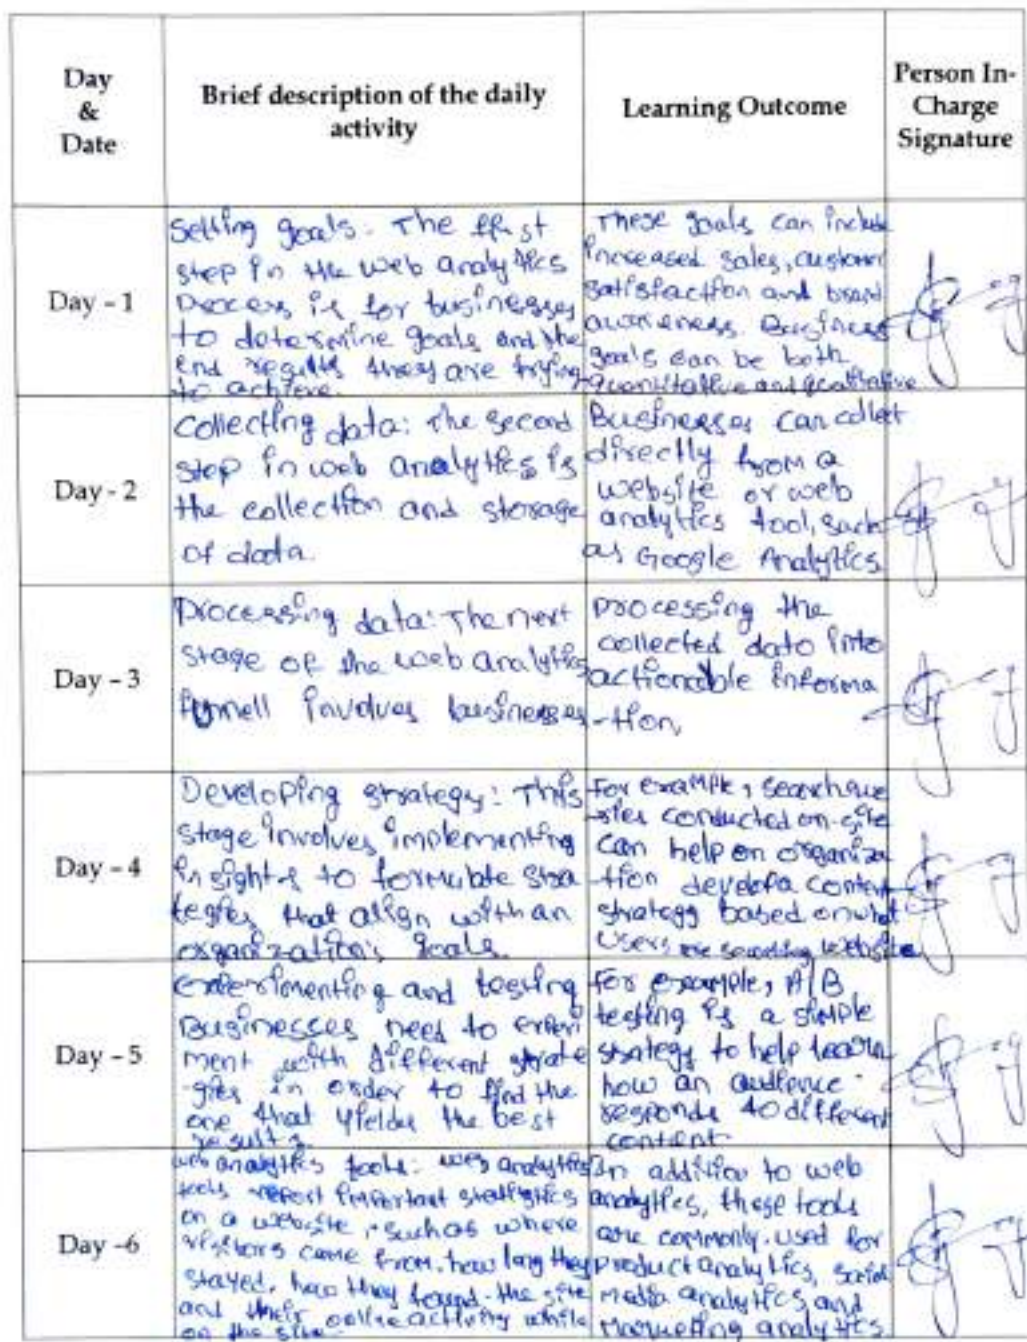 Day
&
Date
Brief description of the daily
activity
Learning Outcome
Person In-
Charge
Signature
Day - 1
Setting goals. The first
step in the web analytics
process is for businesses
to determine goals and the
end results they are trying
to achieve.
These goals can include
increased sales, customer
satisfaction and brand
awareness. Business
goals can be both
quantitative and qualitative
Day - 2
Collecting data: The second
step in web analytics is
the collection and storage
of data.
Businesses can collect
directly from a
website or web
analytics tool, such
as Google Analytics
Day - 3
Processing data: The next
stage of the web analytics
funnell involves businesses
processing the
collected data into
actionable informa
-tion,
Day - 4
Developing strategy: This
stage involves implementing
insights to formulate stra
tegies that align with an
organization's goals.
For example, search que
-ries conducted on-site
can help an organiza
-tion develop a content
strategy based on what
users are searching website
Day - 5
experimenting and testing
Businesses need to experi
ment with different strate
gies in order to find the
one that yields the best
results.
For example, A/B
testing is a simple
strategy to help learn
how an audience
responds to different
content
Day -6
web analytics tools: web analytics
tools report important statistics
on a website, such as where
visitors came from, how long they
stayed, how they found the site
and their online activity while
on the site.
In addition to web
analytics, these tools
are commonly used for
product analytics, social
media analytics, and
marketing analytics